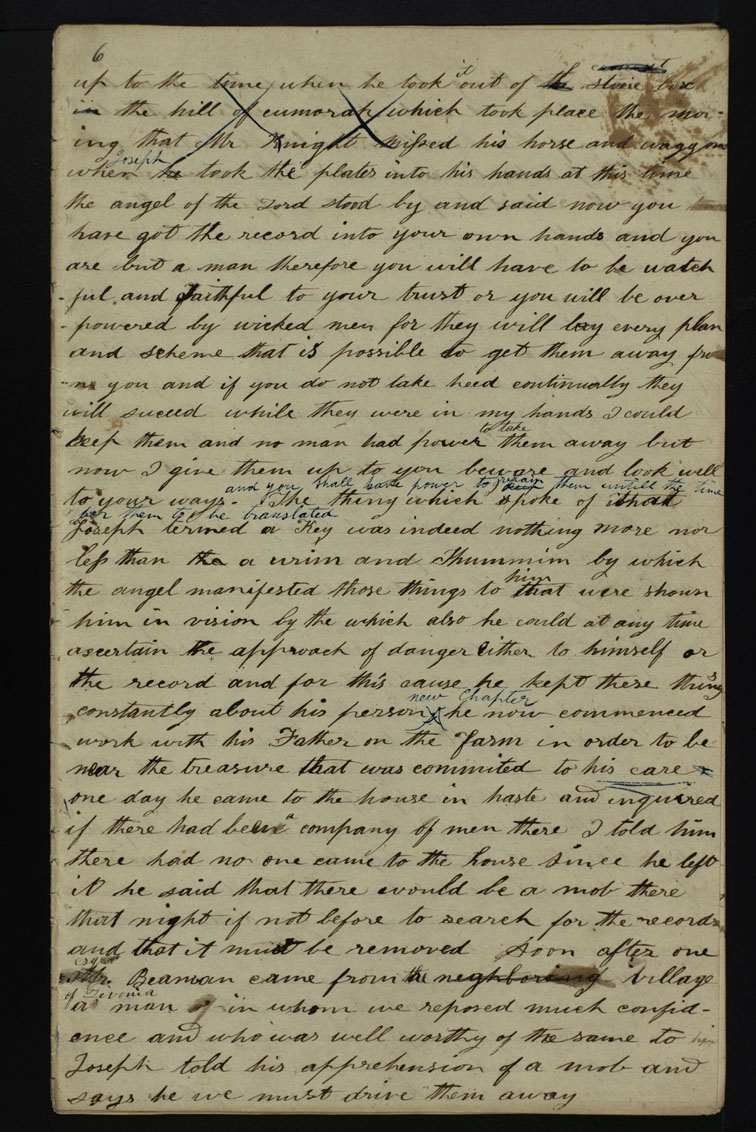 6
up to the time when he took it out of the stone box
in the hill of cumorah which took place the mor-
ing that Mr Knight missed his horse and waggon
Joseph
when he took the plates into his hands at this time
the angel of the Lord stood by and said now you
have got the record into your own hands and you
are but a man therefore you will have to be watch
-ful and faithful to your trust or you will be over
-powered by wicked men for they will lay every plan
and scheme that is possible to get them away fro
-m you and if you do not take heed continually they
will suceed while they were in my hands I could
to take
keep them and no man had power them away but
now I give them up to you beware and look well
and you shall have power to retain them untill the time
to your ways. The thing which spoke of that
for them to be translated
Joseph termed a Key was indeed nothing more nor
less than the a urim and Thummim by which
him
the angel manifested those things to that were shown
him in vision by the which also he could at any time
ascertain the approach of danger either to himself or
the record and for this cause he kept these things
new Chapter
constantly about his person X he now commenced
work with his Father on the farm in order to be
near the treasure that was commited to his care
one day he came to the house in haste and inquired
if there had been a company of men there I told him
there had no one came to the house since he left
it he said that there would be a mob there
that night if not before to search for the record
and that it must be removed soon after one
esqr
Mr. Beaman came from the neghboring village
of Livonia
a man in whom we reposed much confid-
ence and who was well worthy of the same to him
Joseph told his apprehension of a mob and
says he we must drive them away